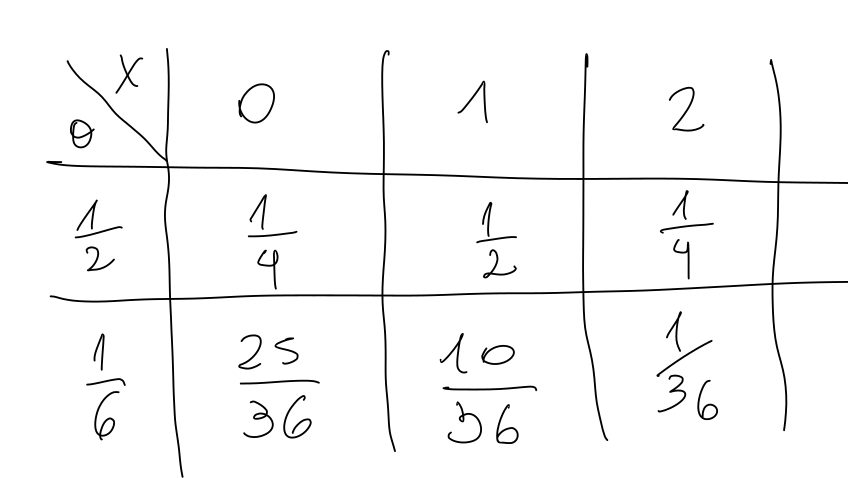 X 0 1 2
θ
1/2 1/4 1/2 1/4
1/6 25/36 10/36 1/36